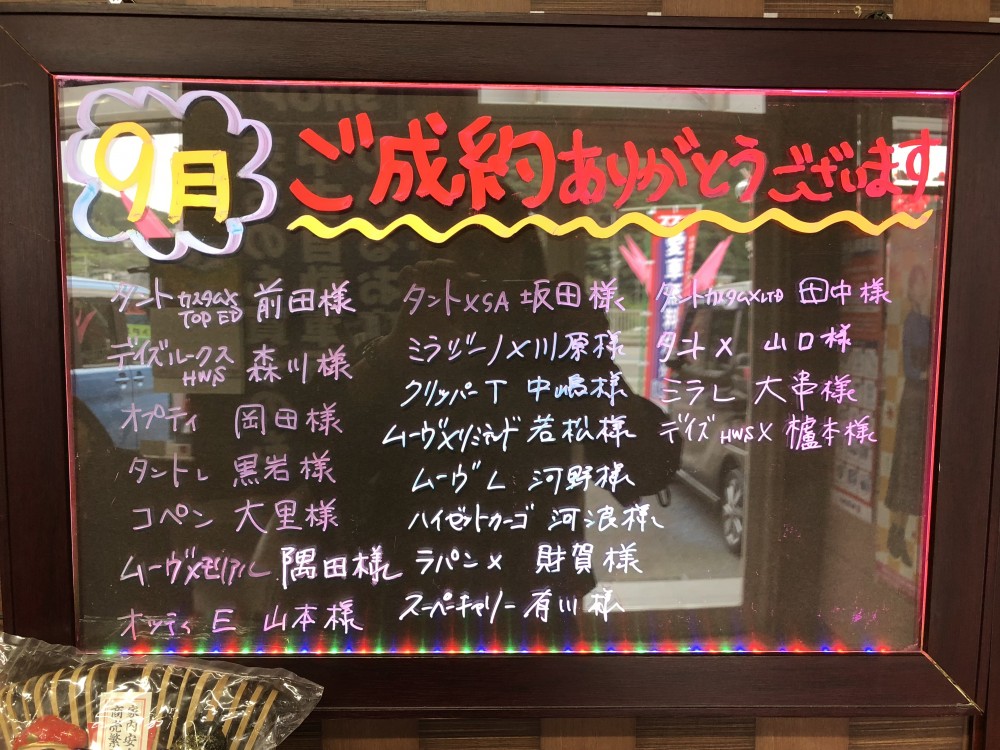 9月
ご成約ありがとうございます
タント カスタムX TOP ED 前田様
デイズルークス HWS 森川様
オプティ 岡田様
タントL 黒岩様
コペン 大里様
ムーヴXメモリアル 隅田様
オッティ E 山本様
タントXSA 坂田様
ミラジーノX川原様
クリッパーT 中嶋様
ムーヴXリミテッド 若松様
ムーヴ L 河野様
ハイゼットカーゴ 河浪様
ラパンX 財賀様
スーパーキャリー 有川様
タントカスタムXLTD 田中様
タントX 山口様
ミラL 大串様
デイズ HWSX 櫨本様
家内安
商売繁